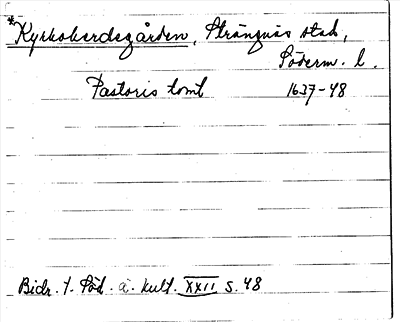 *Kyrkoherdegården, Strängnäs stad,
Söderm. l.
Pastoris tomt 1637-48
Bidr. t. Söd. ä. kult. XXII s. 48